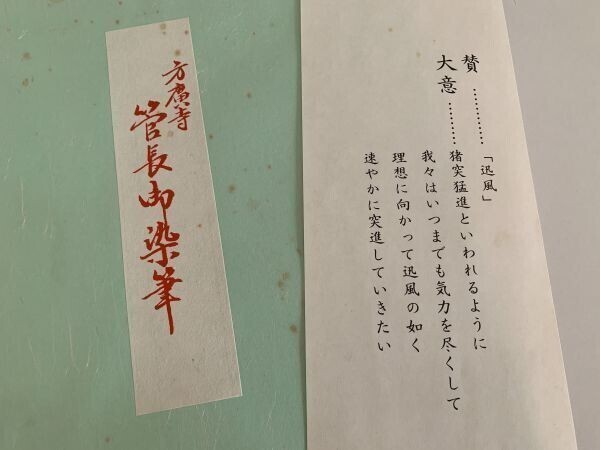 方廣寺
管長御染筆
賛…………「迅風」
大意………猪突猛進といわれるように
我々はいつまでも気力を尽くして
理想に向かって迅風の如く
速やかに突進していきたい